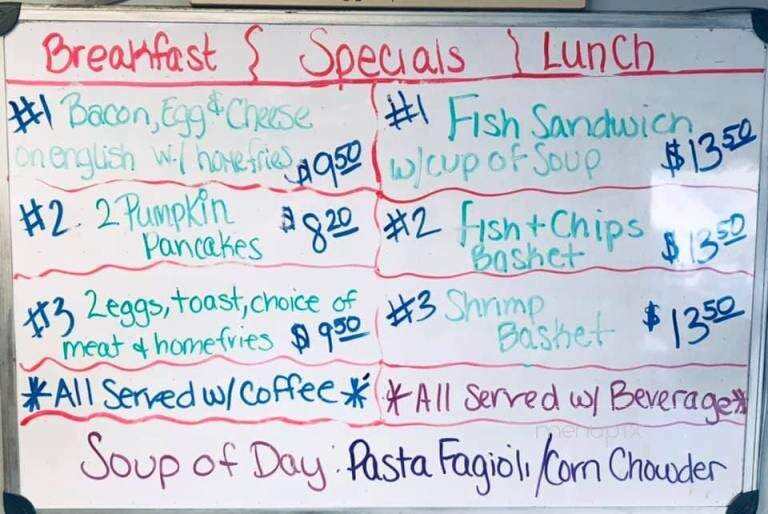 Breakfast { Specials } Lunch
#1 Bacon, Egg & Cheese
on english w/ homefries $9.50
#2. 2 Pumpkin
Pancakes $8.20
#3 2 eggs, toast, choice of
meat & homefries $9.50
*All Served w/ Coffee*
#1 Fish Sandwich
w/ cup of Soup $13.50
#2 Fish + Chips
Basket $13.50
#3 Shrimp
Basket $13.50
*All Served w/ Beverage*
menupix
Soup of Day: Pasta Fagioli/Corn Chowder